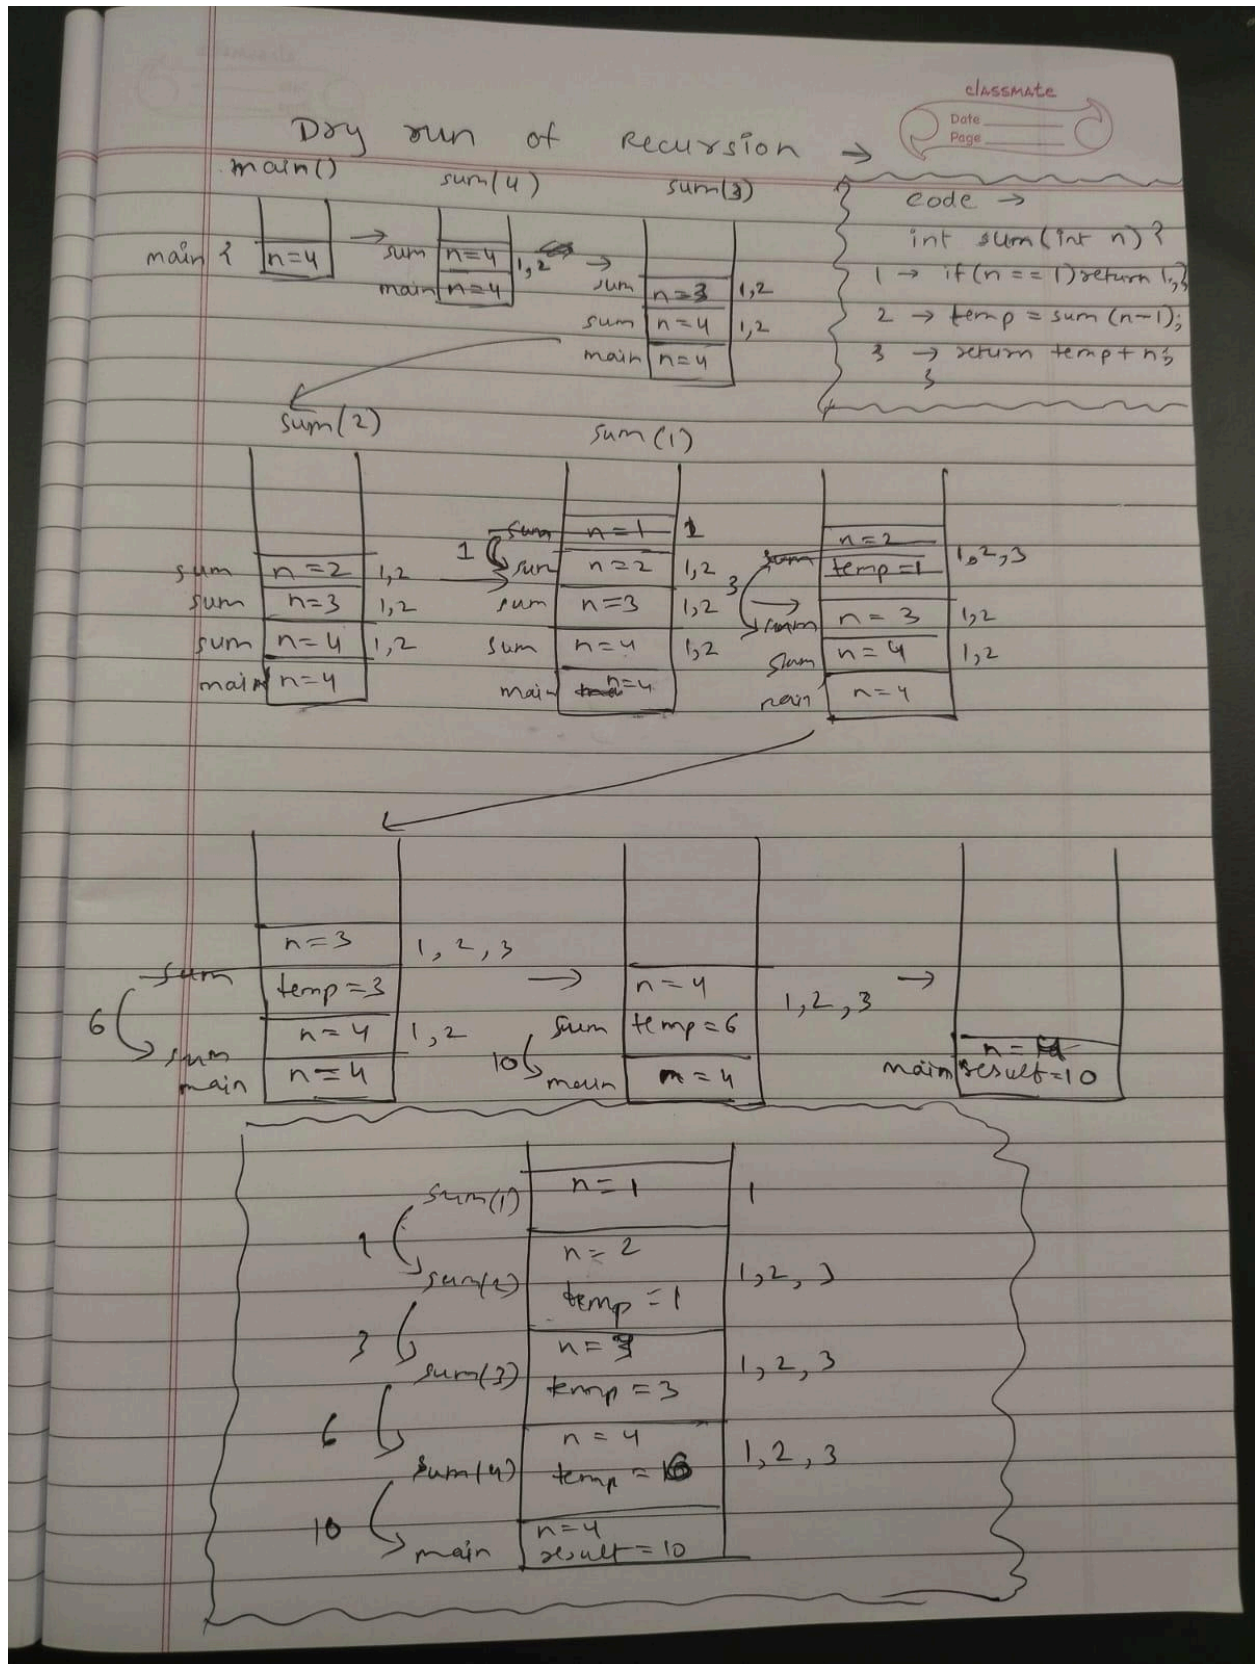 classmate
Date
Page
Dry run of Recursion →
main() sum(4) sum(3)
main { n=4 → sum n=4 1,2 →
main n=4
sum n=3 1,2
sum n=4 1,2
main n=4
code →
int sum(int n) {
1 → if (n == 1) return 1;
2 → temp = sum (n-1);
3 → return temp + n;
}
sum(2) sum(1)
sum n=2 1,2
sum n=3 1,2
sum n=4 1,2
main n=4
1
sum n=1 1
sum n=2 1,2
sum n=3 1,2
sum n=4 1,2
main n=4
3
n=2
sum temp=1 1,2,3
→
sum n=3 1,2
sum n=4 1,2
main n=4
n=3 1,2,3
sum temp=3
6
sum n=4 1,2
main n=4
→
n=4 1,2,3
sum temp=6
10
main n=4
→
n=4
main result=10
sum(1) n=1 1
1
sum(2) n=2 1,2,3
temp=1
3
sum(3) n=3 1,2,3
temp=3
6
sum(4) n=4 1,2,3
temp=6
10
main n=4
result=10